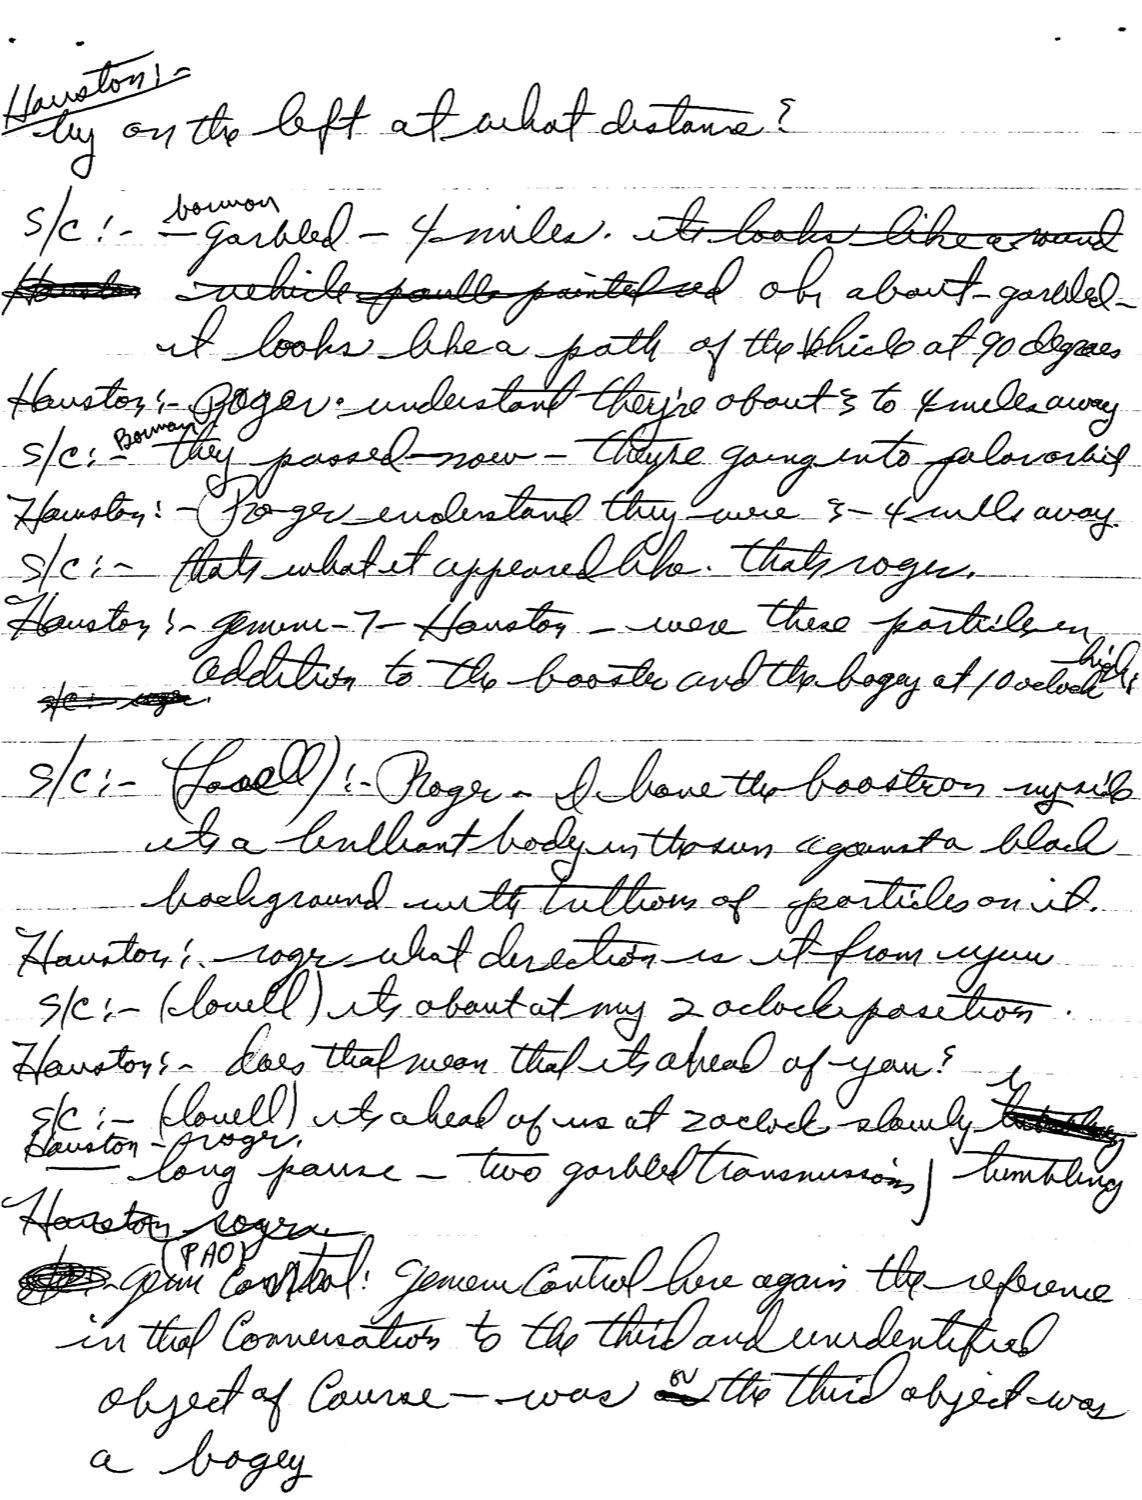 Houston:-
by on the left at what distance?
S/C:- borman - garbled - 4 miles. its looks like a round
Houston vehicle painted red oh, about - garbled -
it looks like a path of the vehicle at 90 degrees
Houston:- Roger. understand they're about 3 to 4 miles away
S/C:- Borman they passed now - they're going into polar orbit
Houston:- Roger understand they were 3-4 mile away.
S/C:- thats what it appeared like. thats roger.
Houston:- gemini-7- Houston - were these particles in
addition to the booster and the bogey at 10 oclock high?
S/C:- roger.
S/C:- (Lovell):- Roger - I have the booster on my side
its a brilliant body in the sun against a black
background with trillions of particles on it.
Houston:- roger what direction is it from you
S/C:- (lovell) its about at my 2 oclock position.
Houston:- does that mean that its ahead of you?
S/C:- (lovell) its ahead of us at 2 oclock slowly tumbling
Houston - roger.
long pause - two garbled transmissions) tumbling
Houston roger
(PAO)
gemi Control: Gemini Control here again the reference
in that Conversation to the third and unidentified
object of Course - was or the third object was
a bogey